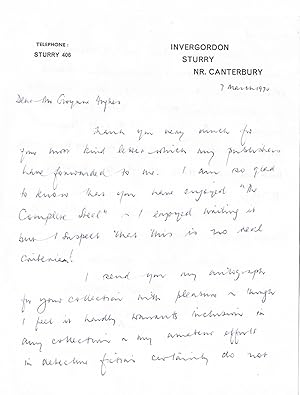 TELEPHONE:
STURRY 406
INVERGORDON
STURRY
NR. CANTERBURY
7 March 1970
Dear Mr Hughes
Thank you very much for
your most kind letter which my publishers
have forwarded to me. I am so glad
to know that you have enjoyed "The
Complete Steel" - I enjoyed writing it
but I suspect that this is no real
criterion!
I send you my autograph
for your collection with pleasure
I feel it hardly warrants inclusion in
any collection my amateur efforts
in detective fiction certainly do not